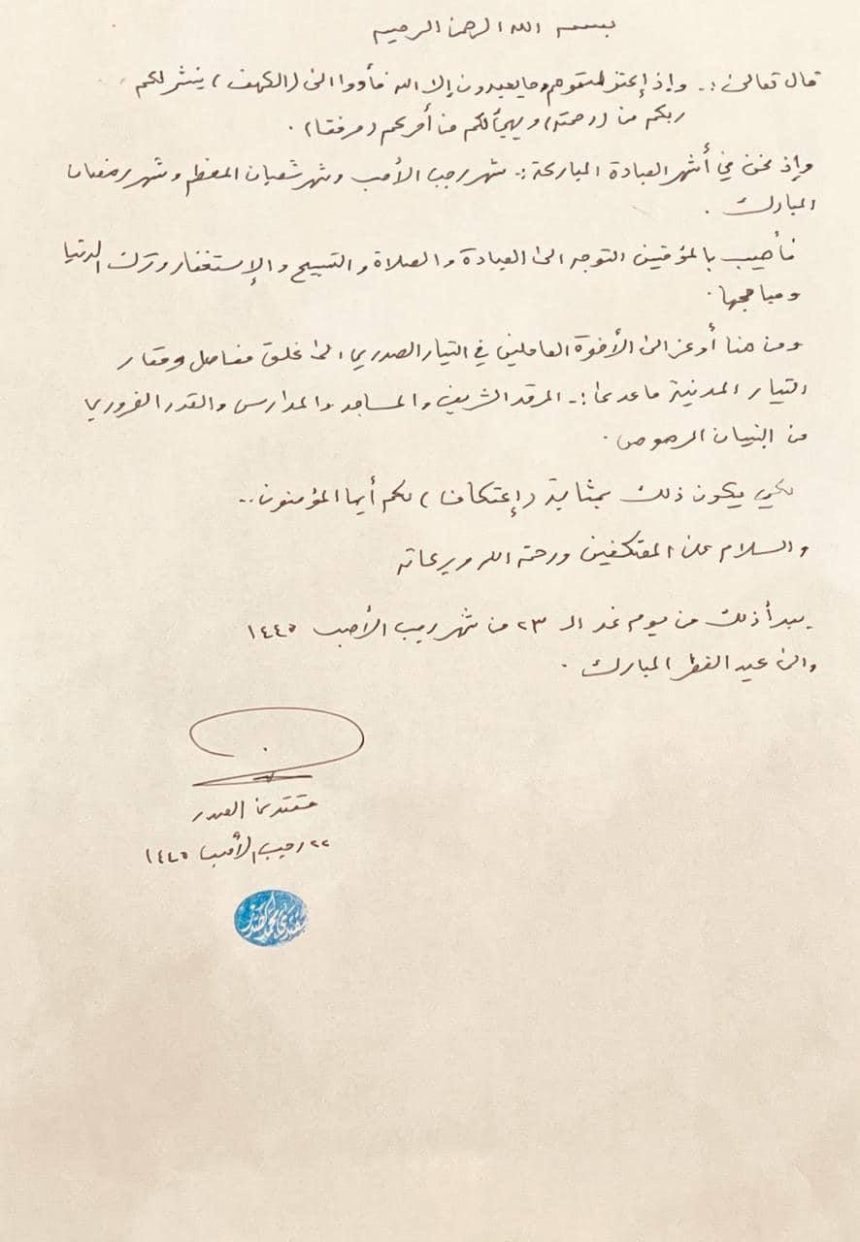 بسمه الله الرحمن الرحيم
قال تعالى :ـ وإذ إعتزلتموهم وما يعبدون إلا الله فأووا الى (الكهف) ينشر لكم
ربكم من (رحمته) و يهيأ لكم من أمركم (مرفقا) .
وإذ نحن في أشهر العبادة المباركة :ـ شهر رجب الأصب وشهر شعبان المعظم وشهر رمضان
المبارك .
فأهيب بالمؤمنين التوجه الى العبادة والصلاة والتسبيح والإستغفار وترك الدنيا
ومباهجها .
ومن هنا أوعز الى الأخوة العاملين في التيار الصدري الى غلق مفاصل ومقار
التيار المدنية ما عدى :ـ المرقد الشريف والمساجد والمدارس والقدر الضروري
من البنيان المرصوص .
لكي يكون ذلك بمثابة (إعتكاف) لكم أيها المؤمنون ..
والسلام على المعتكفين ورحمة الله وبركاته
يبدأ ذلك من يوم غد الـ ٢٣ من شهر رجب الأصب ١٤٤٥
والى عيد الفطر المبارك .
مقتدى الصدر
٢٢ رجب الأصب ١٤٤٥
مقتدى محمد الصدر